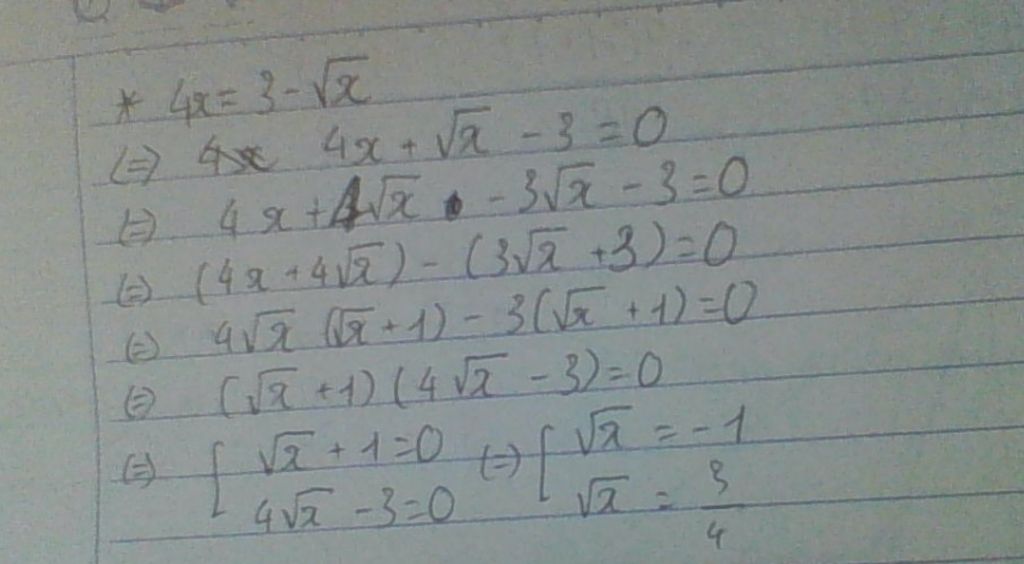 * 4x = 3 - √x
(=) 4x 4x + √x - 3 = 0
(=) 4x + 4√x - 3√x - 3 = 0
(=) (4x + 4√x) - (3√x + 3) = 0
(=) 4√x (√x + 1) - 3(√x + 1) = 0
(=) (√x + 1) (4√x - 3) = 0
(=) [ √x + 1 = 0 (=) [ √x = -1
4√x - 3 = 0 √x = 3/4